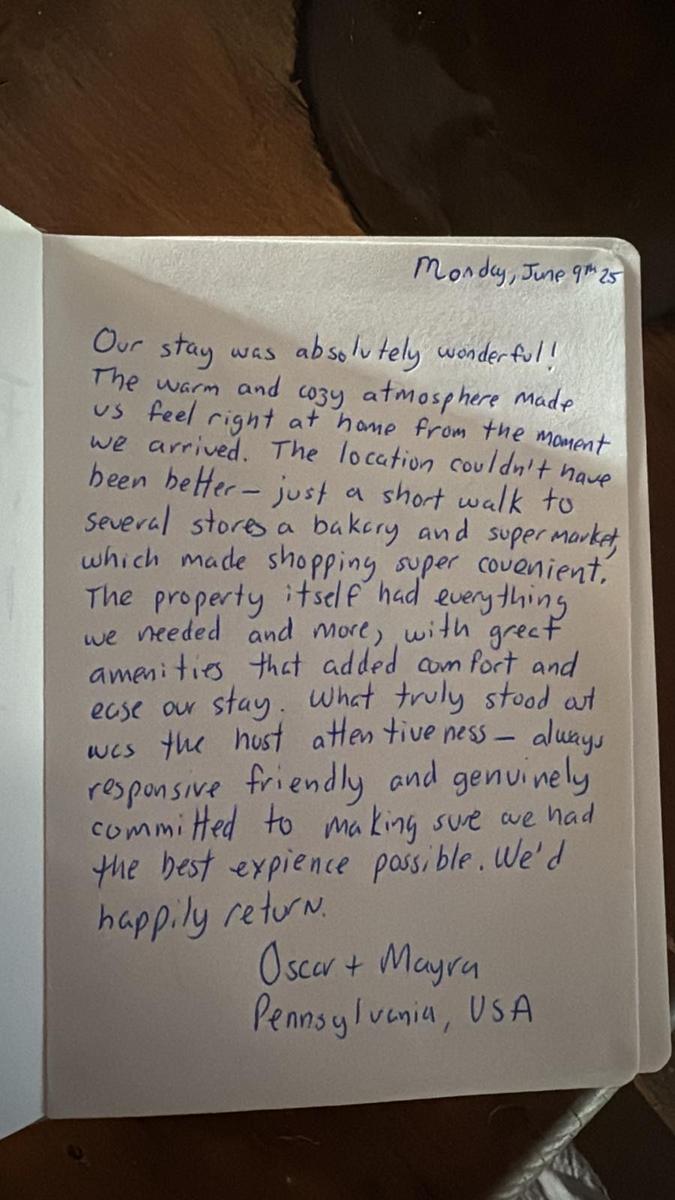 Monday, June 9th 25
Our stay was absolutely wonderful!
The warm and cozy atmosphere made
us feel right at home from the moment
we arrived. The location couldn't have
been better - just a short walk to
several stores a bakery and supermarket,
which made shopping super covenient.
The property itself had everything
we needed and more, with great
amenities that added comfort and
ease our stay. What truly stood out
was the host attentiveness - always
responsive friendly and genuinely
committed to making sure we had
the best expience possible. We'd
happily return.
Oscar + Mayra
Pennsylvania, USA